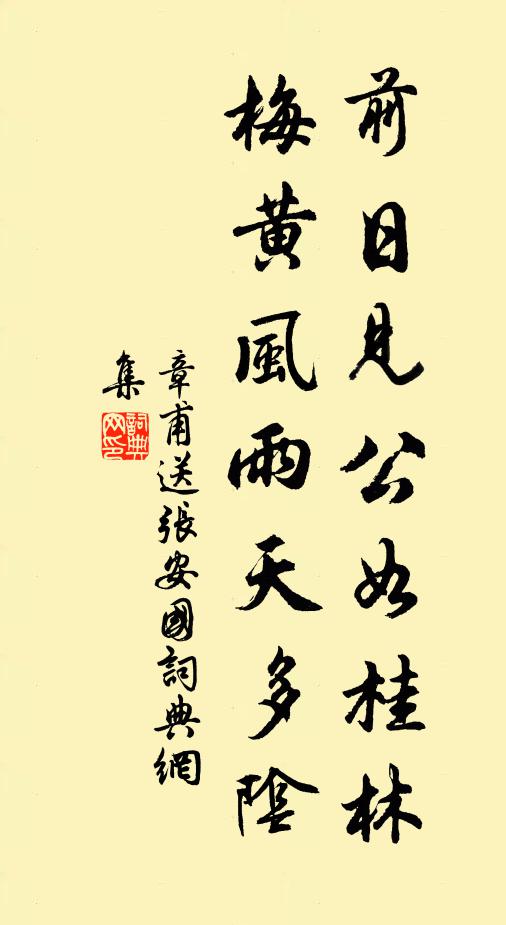 前日見公如桂林
梅黃風雨天多陰
章甫送張安國詞典網
集
詞典
网印